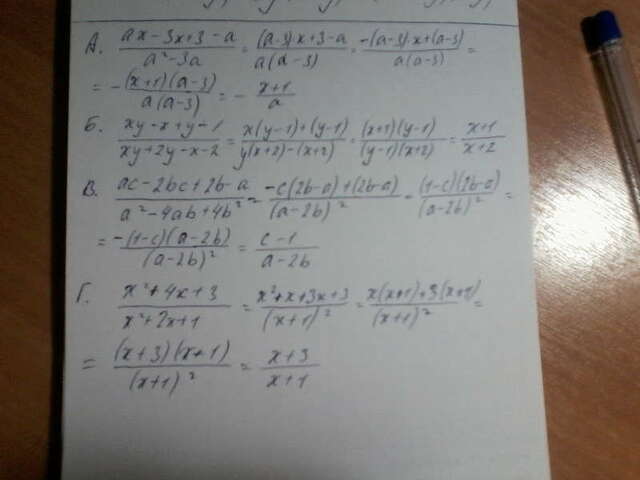 А. (ax - 3x + 3 - a)/(a² - 3a) = ((a-3)x + 3 - a)/(a(a-3)) = (-(a-3)·x + (a-3))/(a(a-3)) =
= -((x+1)(a-3))/(a(a-3)) = - (x+1)/a
Б. (xy - x + y - 1)/(xy + 2y - x - 2) = (x(y-1) + (y-1))/(y(x+2) - (x+2)) = ((x+1)(y-1))/((y-1)(x+2)) = (x+1)/(x+2)
В. (ac - 2bc + 2b - a)/(a² - 4ab + 4b²) = (-c(2b-a) + (2b-a))/((a-2b)²) = ((1-c)(2b-a))/((a-2b)²) =
= (-(1-c)(a-2b))/((a-2b)²) = (c-1)/(a-2b)
Г. (x² + 4x + 3)/(x² + 2x + 1) = (x² + x + 3x + 3)/((x+1)²) = (x(x+1) + 3(x+1))/((x+1)²) =
= ((x+3)(x+1))/((x+1)²) = (x+3)/(x+1)